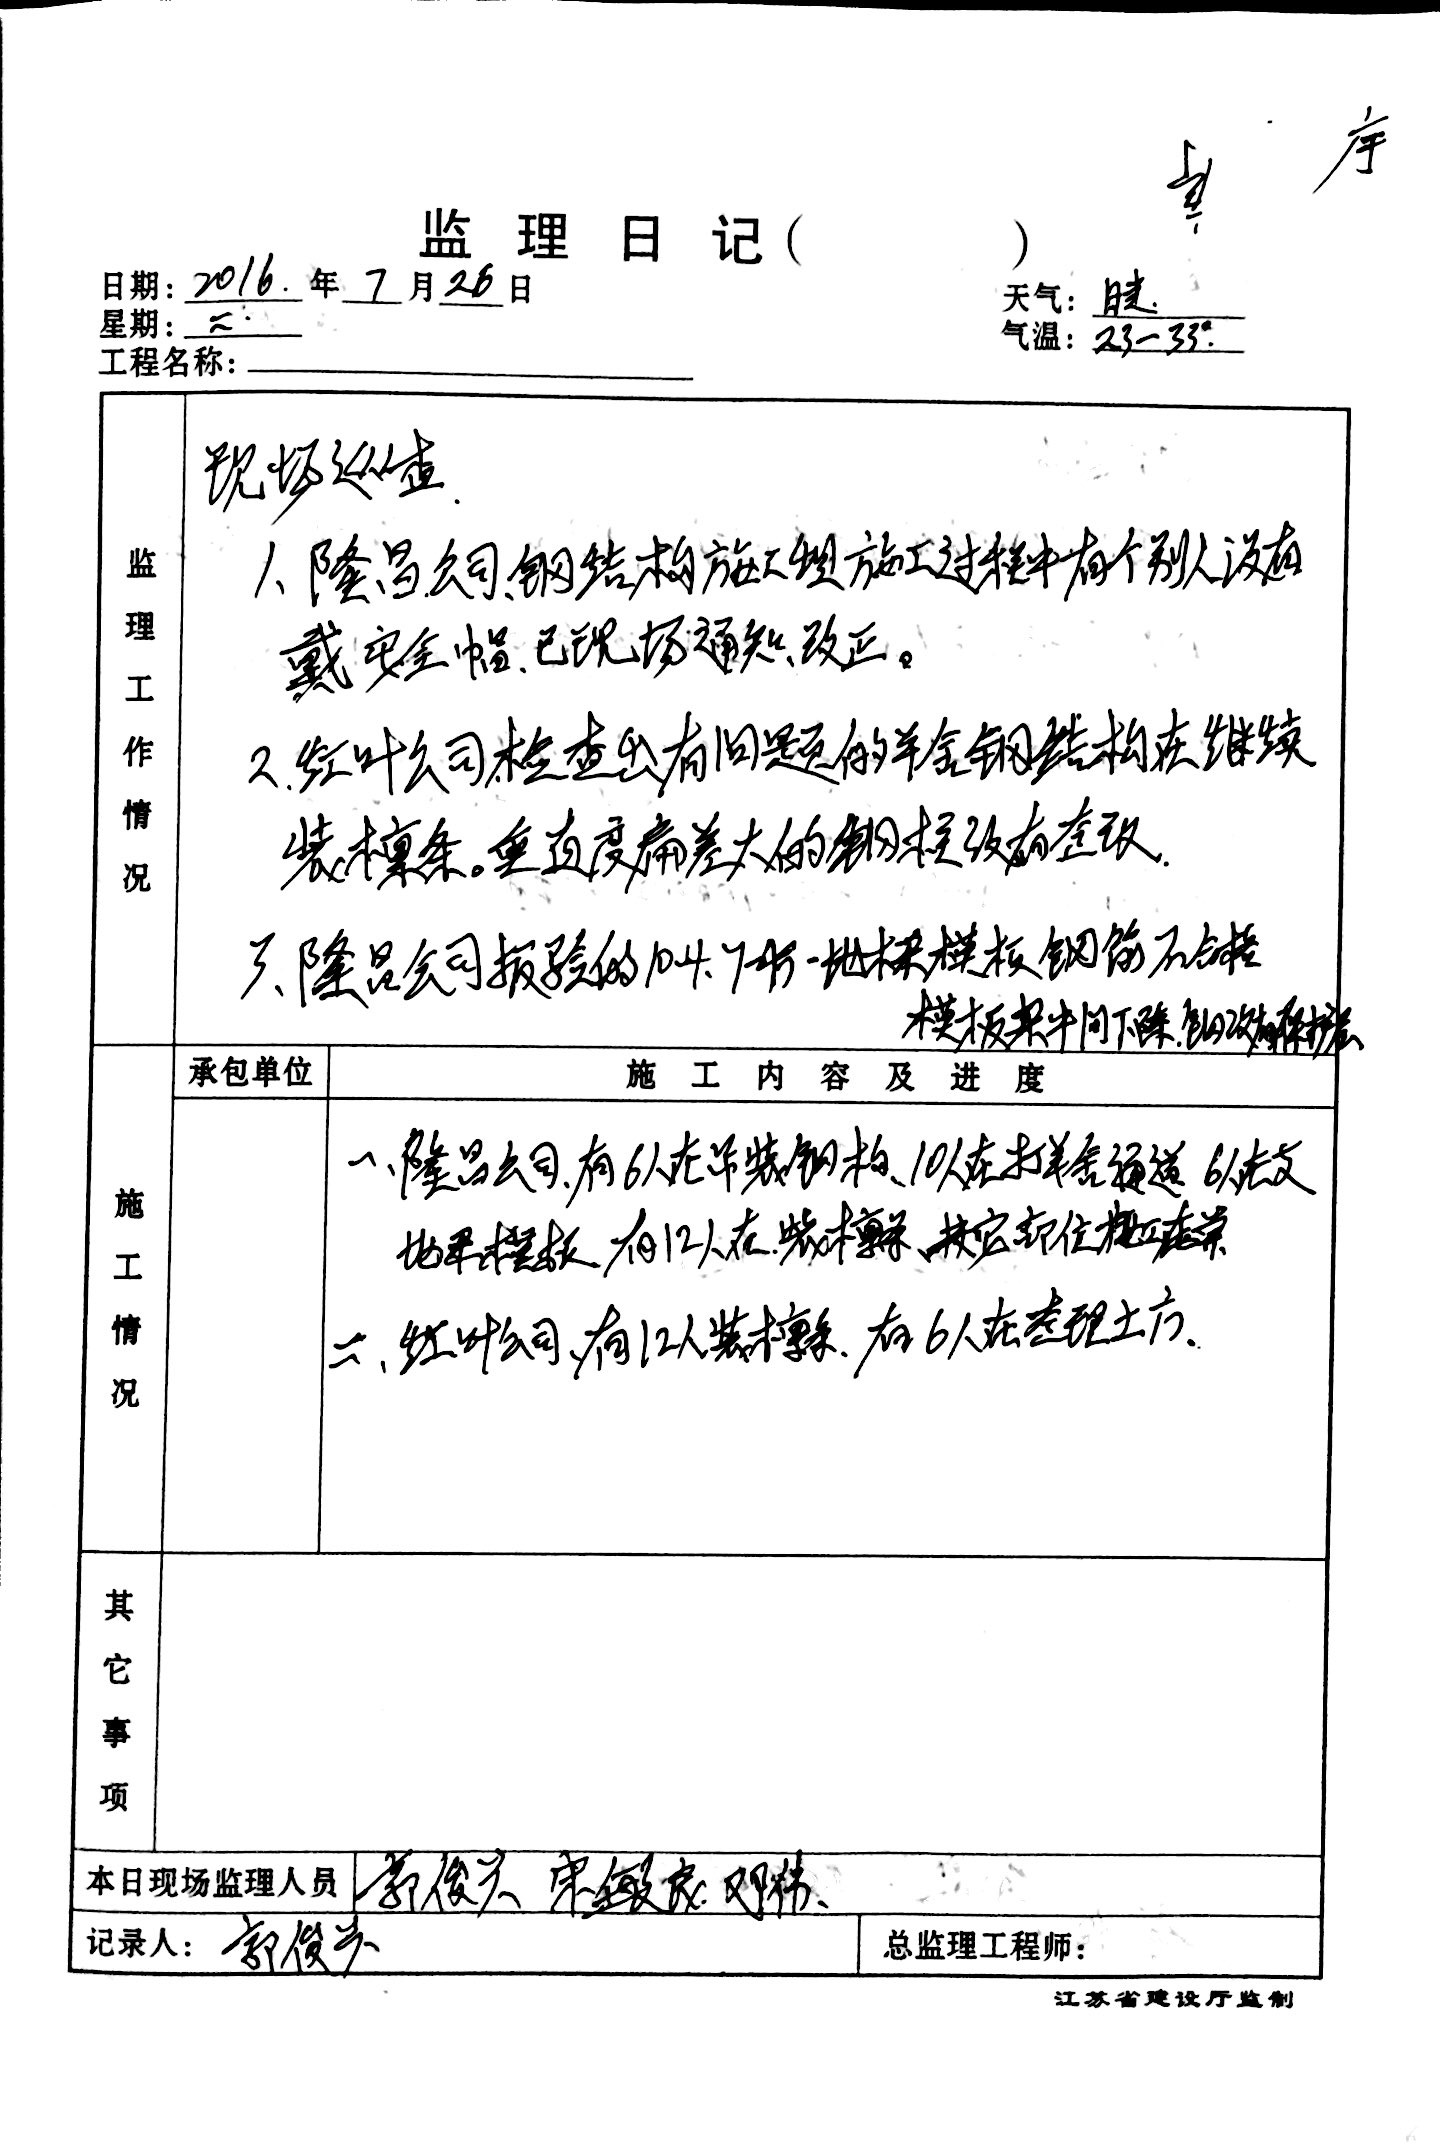 序
监理日记(            )
日期:2016.年7月26日
天气:晴.
星期:二.
气温:23-33°.
工程名称:
监理工作情况
现场巡查.
1、隆昌公司、钢结构施工现施工过程中有个别人没有
戴安全帽、已现场通知、改正。
2、红叶公司检查出有问题的羊舍钢结构在继续
装檩条。垂直度偏差大的钢柱没有整改.
3、隆昌公司报验的104.7-45-地梁模板钢筋不合格
模板梁中间下降.钢没有保护层
承包单位
施工内容及进度
施工情况
一、隆昌公司、有6人在吊装钢构、10人在打羊舍通道 6人在支
地梁模板、有12人在装檩条、其它部位施工正常
二、红叶公司、有12人装檩条.有6人在整理土方.
其它事项
本日现场监理人员 郭俊兴 宋敏民 邓伟、
记录人: 郭俊兴
总监理工程师:
江苏省建设厅监制